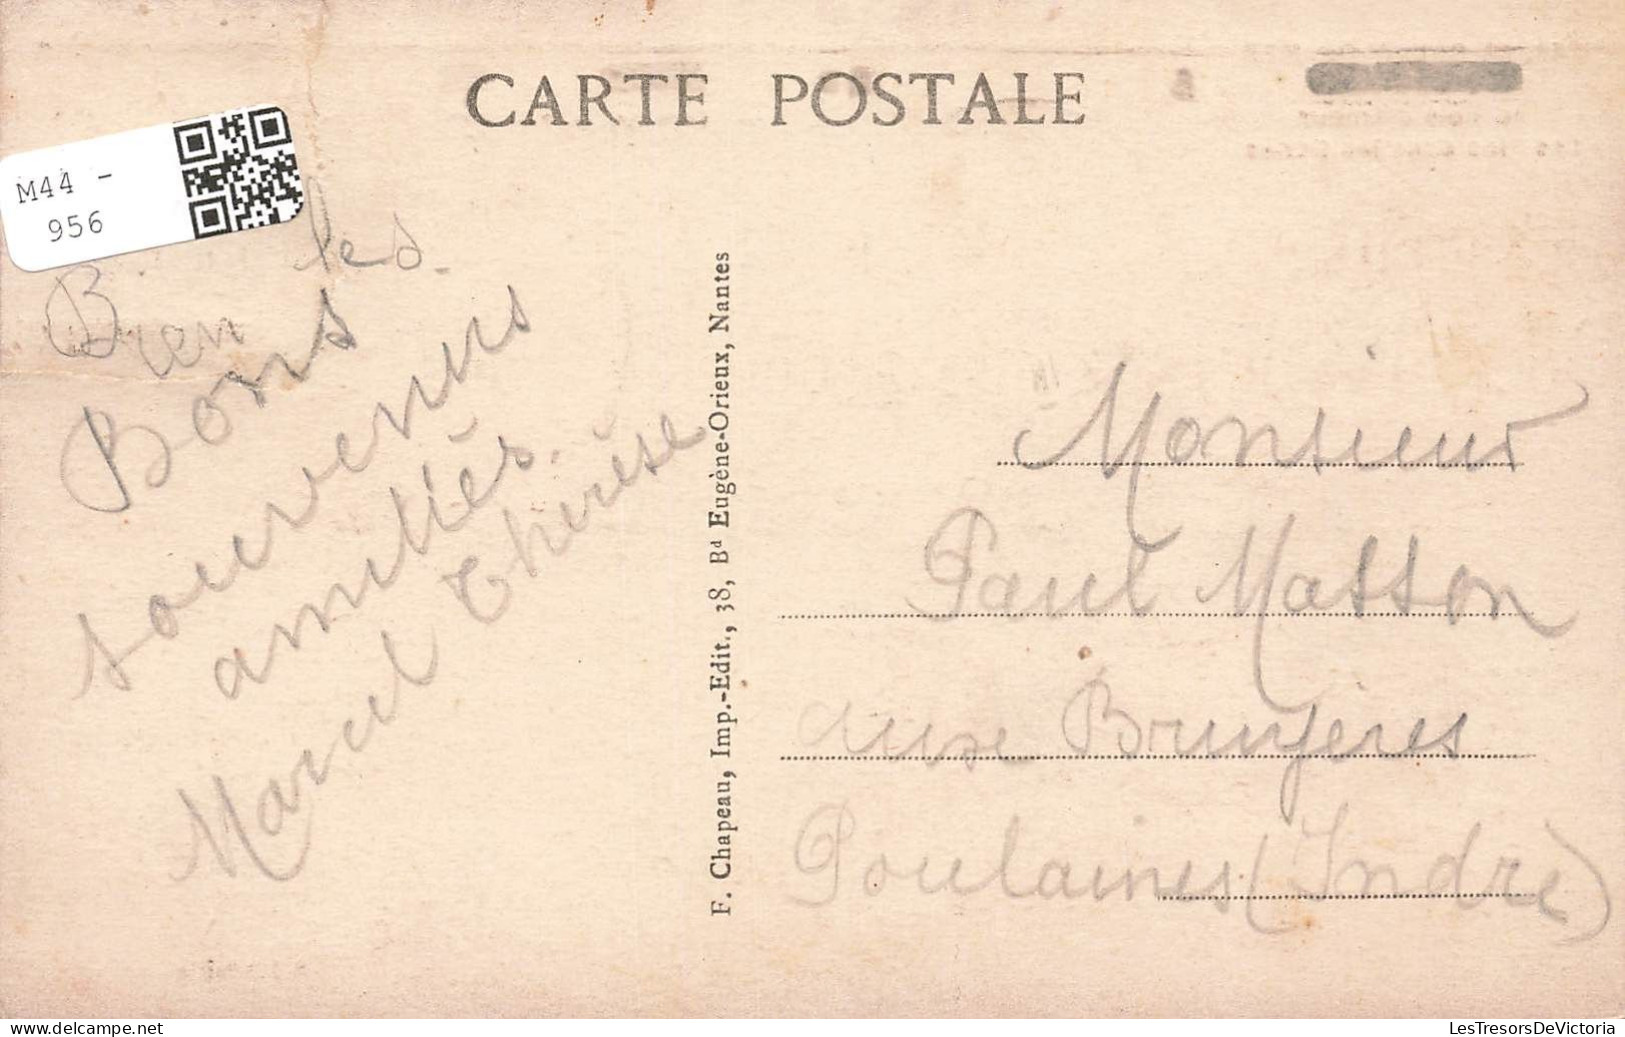 CARTE POSTALE
M44 -
956
Bien les
Bons
souvenirs
amitiés.
Marcel Thérèse
F. Chapeau, Imp.-Edit., 38, Bd Eugène-Orieux, Nantes
Monsieur
Paul Masson
aux Bruyères
Poulaines (Indre)
www.delcampe.net
LesTresorsDeVictoria